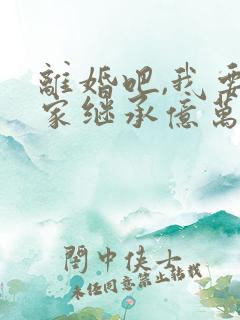 離婚吧,我要
家继承億萬
閑中侠士
未经同意禁止转载